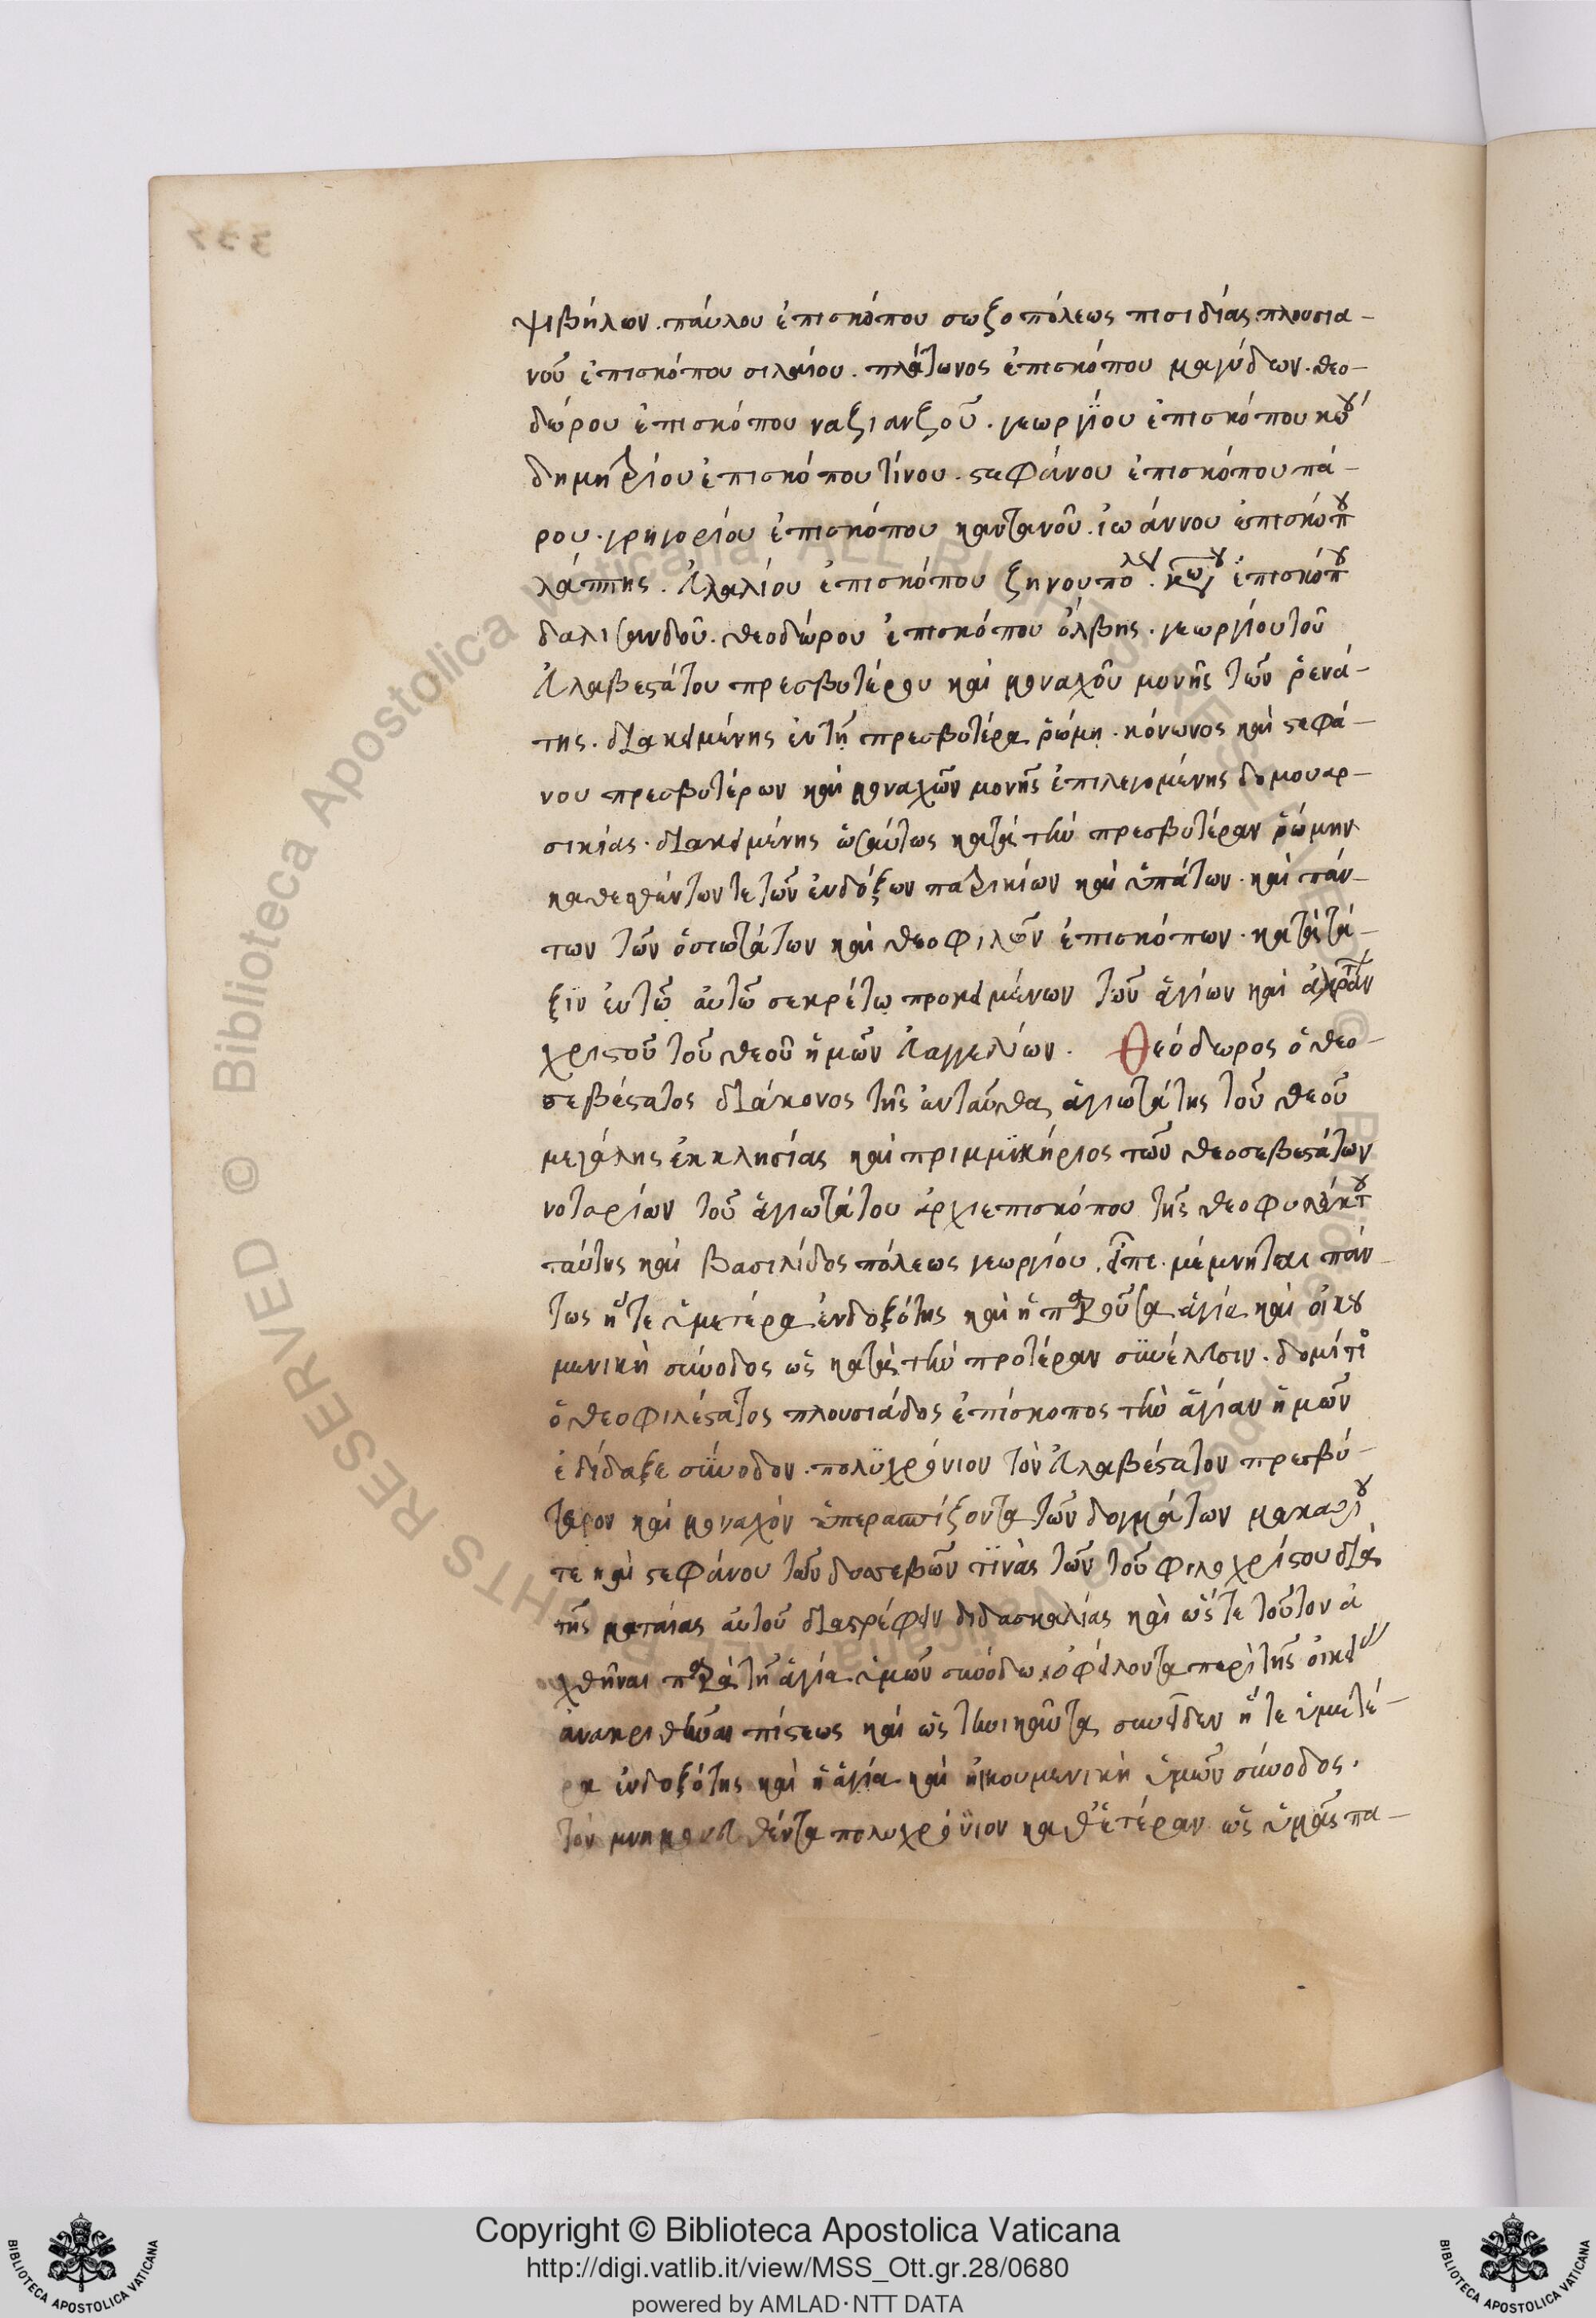 ψιβήλων. παύλου ἐπισκόπου σωζοπόλεως πισιδίας. πλουσια-
νοῦ ἐπισκόπου σιλαίου. πλάτωνος ἐπισκόπου μαγύδων. θεο-
δώρου ἐπισκόπου ναζιανζοῦ. γεωργίου ἐπισκόπου κῶ
δημητρίου ἐπισκόπου τίνου. στεφάνου ἐπισκόπου πά-
ρου. γρηγορίου ἐπισκόπου καντανοῦ. ἰωάννου ἐπισκόπου
λάππης. εὐλαλίου ἐπισκόπου ζηνουπόλεως. ἐπισκόπου
δαλισανδοῦ. θεοδώρου ἐπισκόπου ὄλβης. γεωργίου τοῦ
εὐλαβεστάτου πρεσβυτέρου καὶ μοναχοῦ μονῆς τῶν ῥενά-
της. διακειμένης ἐν τῇ πρεσβυτέρα ῥώμη. κόνωνος καὶ στεφά-
νου πρεσβυτέρων καὶ μοναχῶν μονῆς ἐπιλεγομένης δομουαρ-
σικίας. διακειμένης ὡσαύτως κατὰ τὴν πρεσβυτέραν ῥώμην
καθεσθέντων τε τῶν ἐνδόξων πατρικίων καὶ ὑπάτων. καὶ πάν-
των τῶν ὁσιωτάτων καὶ θεοφιλῶν ἐπισκόπων. κατὰ τά-
ξιν ἐν τῷ αὐτῷ σεκρέτω προκειμένων τῶν ἁγίων καὶ ἀχράντων
χριστοῦ τοῦ θεοῦ ἡμῶν εὐαγγελίων. Θεόδωρος ὁ θεο-
σεβέστατος διάκονος τῆς ἐνταῦθα ἁγιωτάτης τοῦ θεοῦ
μεγάλης ἐκκλησίας καὶ πριμμικήριος τῶν θεοσεβεστάτων
νοταρίων τοῦ ἁγιωτάτου ἀρχιεπισκόπου τῆς θεοφυλάκτου
ταύτης καὶ βασιλίδος πόλεως γεωργίου, εἶπε. μέμνηται πάν-
τως ἥ τε ὑμετέρα ἐνδοξότης καὶ ἡ παροῦσα ἁγία καὶ οἰκου
μενικὴ σύνοδος ὡς κατὰ τὴν προτέραν συνέλευσιν. δομέτιος
ὁ θεοφιλέστατος πλουσιάδος ἐπίσκοπος τὴν ἁγίαν ἡμῶν
ἐδίδαξε σύνοδον. πολυχρόνιον τὸν εὐλαβέστατον πρεσβύ-
τερον καὶ μοναχὸν ὑπερασπίζοντα τῶν δογμάτων μακαρίου
τε καὶ στεφάνου τῶν δυσσεβῶν τινὰς τῶν τοῦ φιλοχρίστου διὰ
τῆς ματαίας αὐτοῦ διαστρέφειν διδασκαλίας καὶ ὥστε τοῦτον ἀ
χθῆναι παρὰ τῇ ἁγία ὑμῶν συνόδω ὀφείλοντα περὶ τῆς οἰκείας
ἀνακριθῆναι πίστεως καὶ ὡς τηνικαῦτα συνεῖδεν ἥ τε ὑμετέ-
ρα ἐνδοξότης καὶ ἡ ἁγία καὶ οἰκουμενικὴ ὑμῶν σύνοδος.
τὸν μνημονευθέντα πολυχρόνιον καθ' ἑτέραν ὡς ὑμᾶς πα-
Copyright © Biblioteca Apostolica Vaticana
http://digi.vatlib.it/view/MSS_Ott.gr.28/0680
powered by AMLAD·NTT DATA